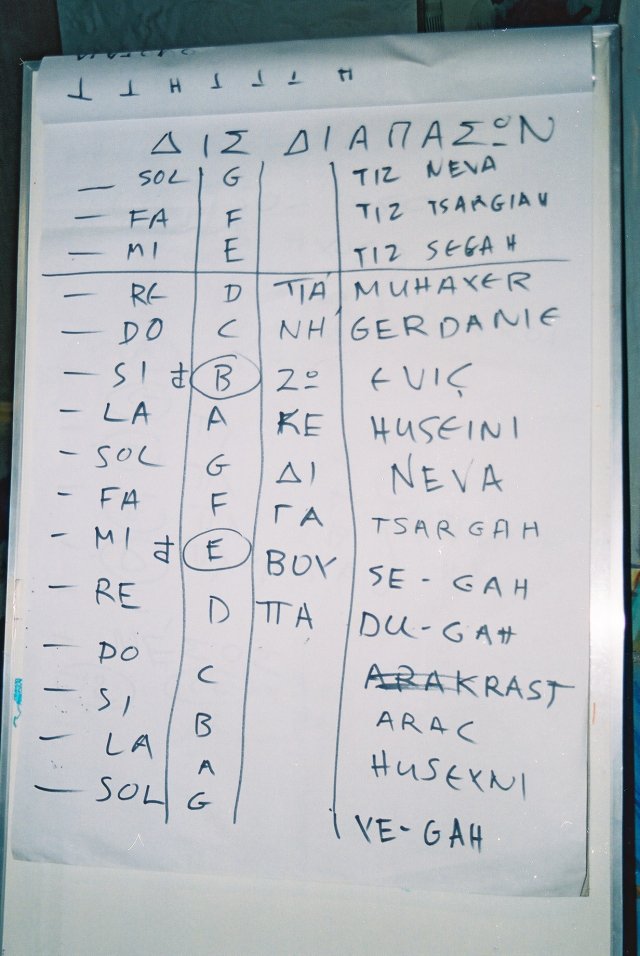 T T H T T T H
ΔΙΣ ΔΙΑΠΑΣΩΝ
— SOL G TIZ NEVA
— FA F TIZ TSARGIAH
— MI E TIZ SEGAH
— RE D ΠΑ' MUHAYER
— DO C ΝΗ' GERDANIE
— SI B ΖΩ EVIÇ
— LA A ΚΕ HUSEINI
— SOL G ΔΙ NEVA
- FA F ΓΑ TSARGAH
- MI E ΒΟΥ SE-GAH
- RE D ΠΑ DU-GAH
— DO C RAST
— SI B ARAC
— LA A HUSEYNI
— SOL G YE-GAH